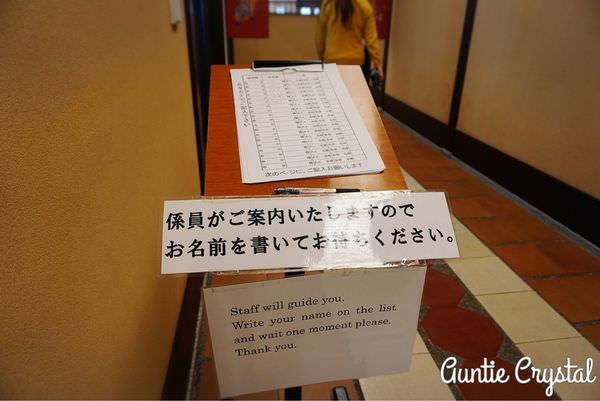 次のページに、ご記入お願いします。
係員がご案内いたしますので
お名前を書いてお待ちください。
Staff will guide you.
Write your name on the list
and wait one moment please.
Thank you.
Auntie Crystal